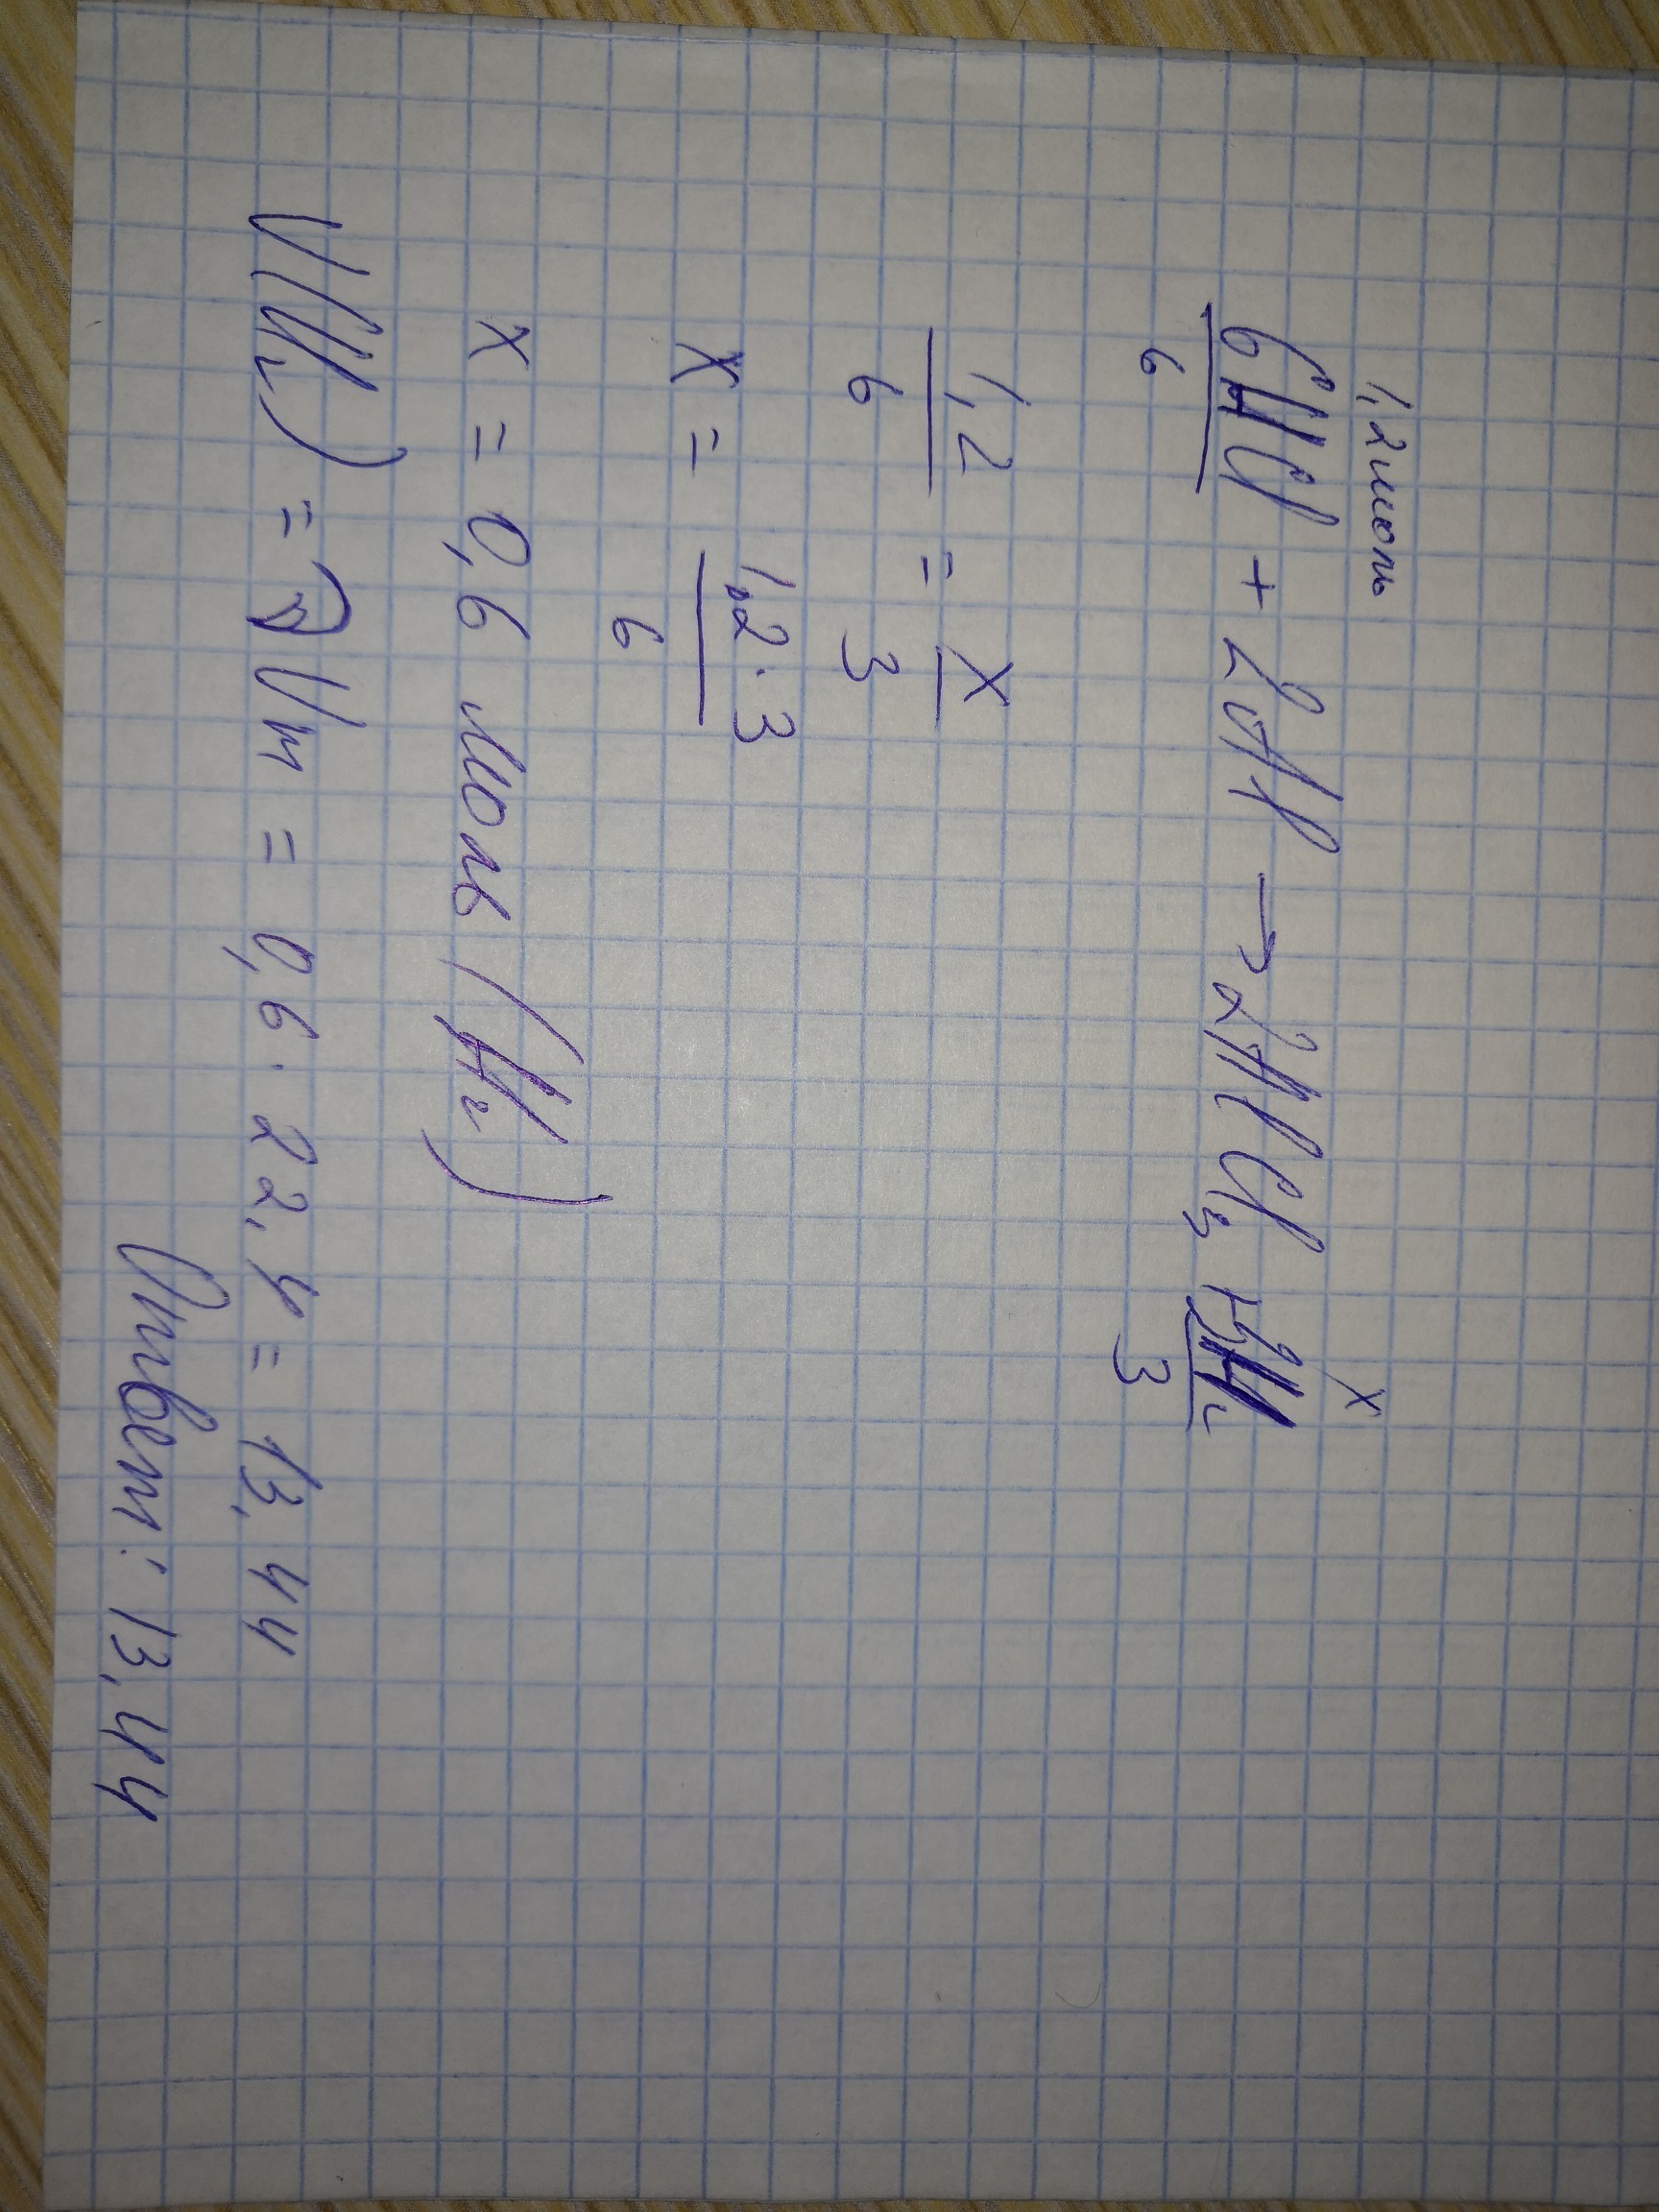 1,2 моль x
6HCl + 2Al → 2AlCl₃ + 3H₂
6 3
1,2 = x
6 3
x = 1,2 · 3
6
x = 0,6 моль (H₂)
V(H₂) = Vm = 0,6 · 22,4 = 13,44
Ответ: 13,44